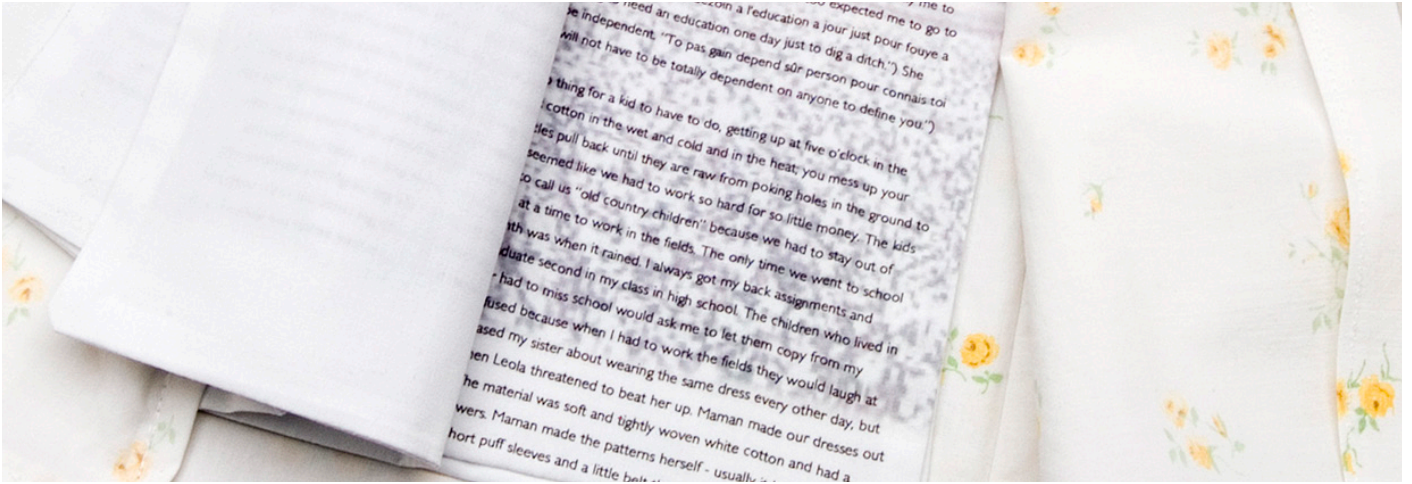 me to
expected me to go to
need an education one day just to dig a ditch.") She
a l'education a jour just pour fouye a
be independent. "To pas gain depend sûr person pour connais toi
will not have to be totally dependent on anyone to define you.")
thing for a kid to have to do, getting up at five o'clock in the
cotton in the wet and cold and in the heat; you mess up your
pull back until they are raw from poking holes in the ground to
seemed like we had to work so hard for so little money. The kids
to call us "old country children" because we had to stay out of
at a time to work in the fields. The only time we went to school
was when it rained. I always got my back assignments and
second in my class in high school. The children who lived in
had to miss school would ask me to let them copy from my
because when I had to work the fields they would laugh at
my sister about wearing the same dress every other day, but
Leola threatened to beat her up. Maman made our dresses out
he material was soft and tightly woven white cotton and had a
Maman made the patterns herself - usually
puff sleeves and a little belt